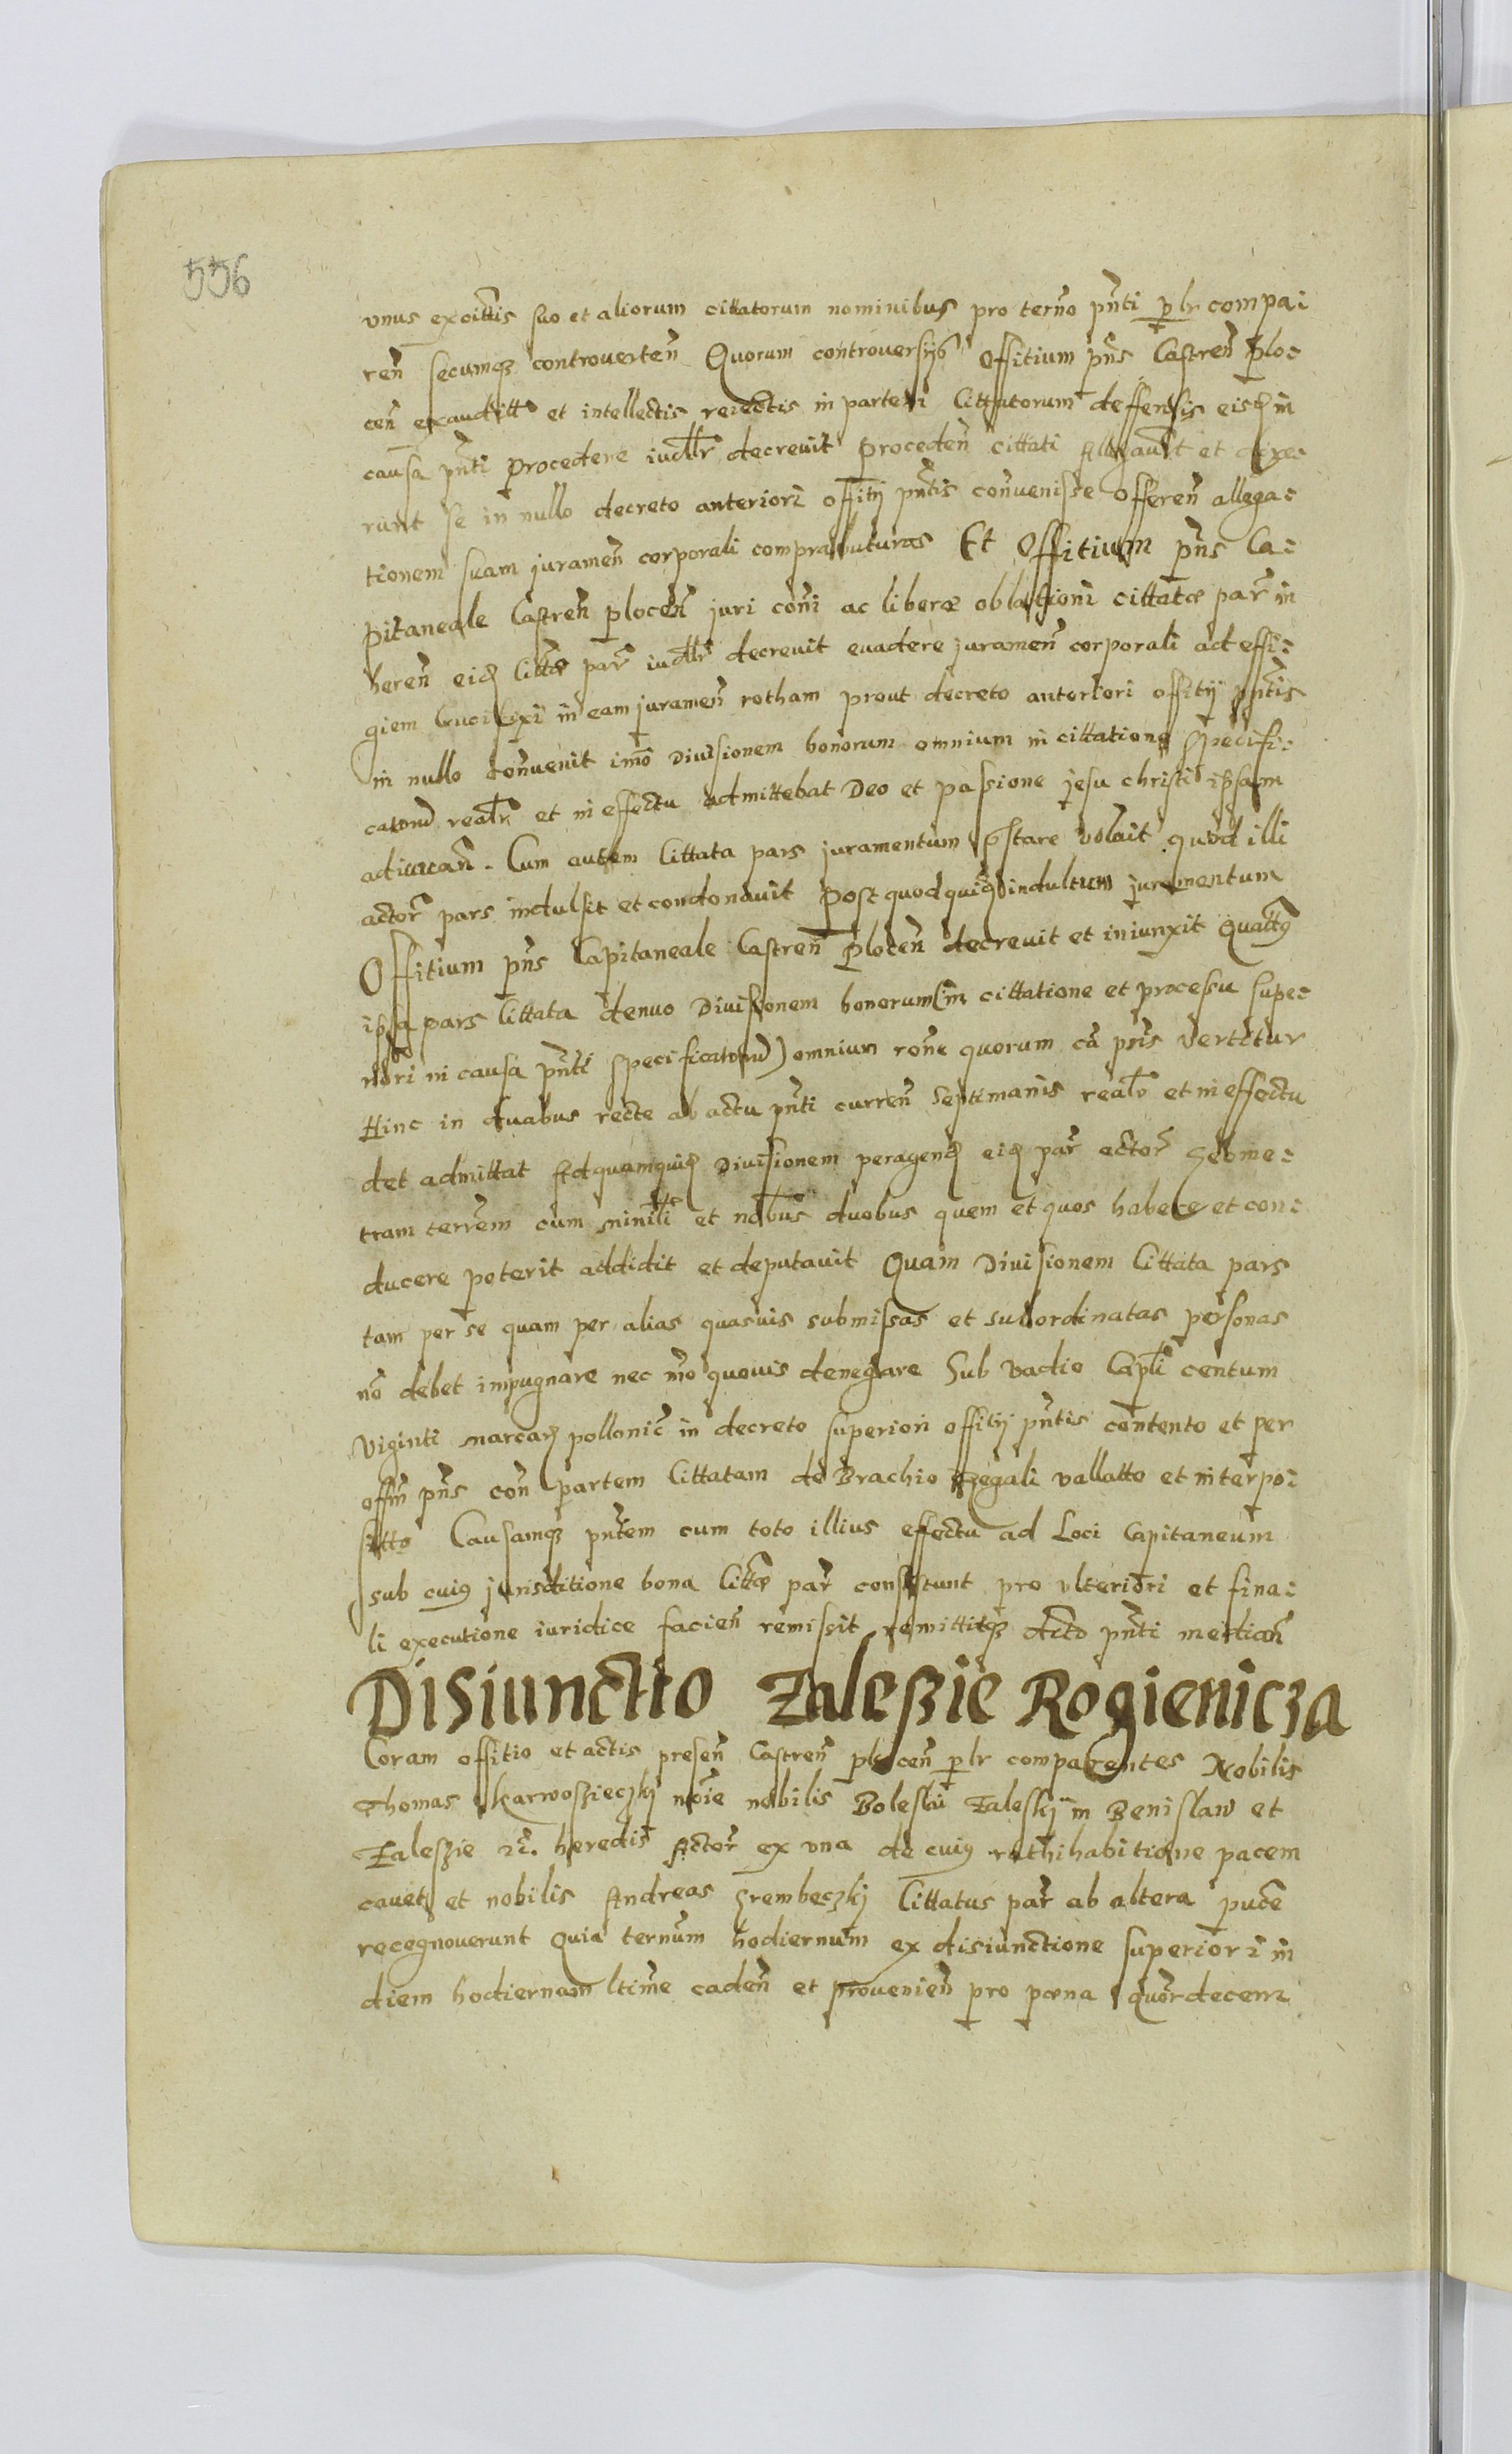 556
vnus excittis suo et aliorum cittatorum nominibus pro terño pñti plr compa:
reñ secumqʒ controverteñ Quorum controversijs Offitium pñs Castreñ Plo:
ceñ exaudittis et intellectis reiectis in partem Cittatorum deffensis eisd in
causa pñti procedere iudlr decrevit Procedeñ cittati Allegaverunt et dixe:
runt se in nullo decreto anteriori offitij pñtis convenisse offereñ allega:
tionem suam jurameñ corporali comprabuturas Et Offitium pñs Ca:
pitaneale Castreñ ploceñ juri coñi ac liberæ oblationi cittatæ par in
hereñ eid Cittæ par iudlr decrevit evadere jurameñ corporali ad effi:
giem Crucifixi in eam jurameñ rotham prout decreto anteriori offitij pñtis
in nullo convenit imo Divisionem bonorum omnium in cittatione specifi:
catorum realr et in effectu admittebat Deo et passione jesu christi ipsam
adiuvañ. Cum autem Cittata pars juramentum pstare voluit quod illi
actor pars indulsit et condonavit Post quodquid indultum juramentum
Offitium pñs Capitaneale Castreñ Ploceñ decrevit et iniunxit Quattus
ipsa pars Cittata denuo Divisionem bonorum (in cittatione et processu supe:
riori in causa pñti specificatorum) omnium rone quorum ca pñs vertitur
Hinc in duabus recte ab actu pñti curreñ Septimanis realr et in effectu
det admittat Ad quamquid Divisionem peragend eid par actor Geome:
tram terrem cum minlli et nobus duobus quem et quos habere et con:
ducere poterit addidit et deputavit Quam Divisionem Cittata pars
tam per se quam per alias quasvis submissas et subordinatas personas
no debet impugnare nec mo quovis denegare Sub vadio Capli centum
viginti marcar pollonic in decreto superiori offitij pñtis contento et per
offm pñs coñ partem Cittatam de Brachio Regali vallatto et interpo:
sitto Causamqʒ pñtem cum toto illius effectu ad Loci Capitaneum
sub cuius jurisditione bona Cittæ par consistunt pro ulteriori et fina:
li executione iuridice facieñ remissit remittitqʒ dcto pñti mediañ
Disiunctio Zaleszie Rogienicza
Coram offitio et actis preseñ Castreñ ploceñ plr comparentes Nobilis
Thomas Karwoszieczkj noie nobilis Boleslai Zaleskj in Benislaw et
Zaleszie rc. heredis Actor ex vna de cuius rathihabitione pacem
cavet et nobilis Andreas Srembeczkj Cittatus par ab altera puce
recegnoverunt Quia ternum hodiernum ex disiunctione superiori in
diem hodiernam ltime cadeñ et provenieñ pro pæna quordecem